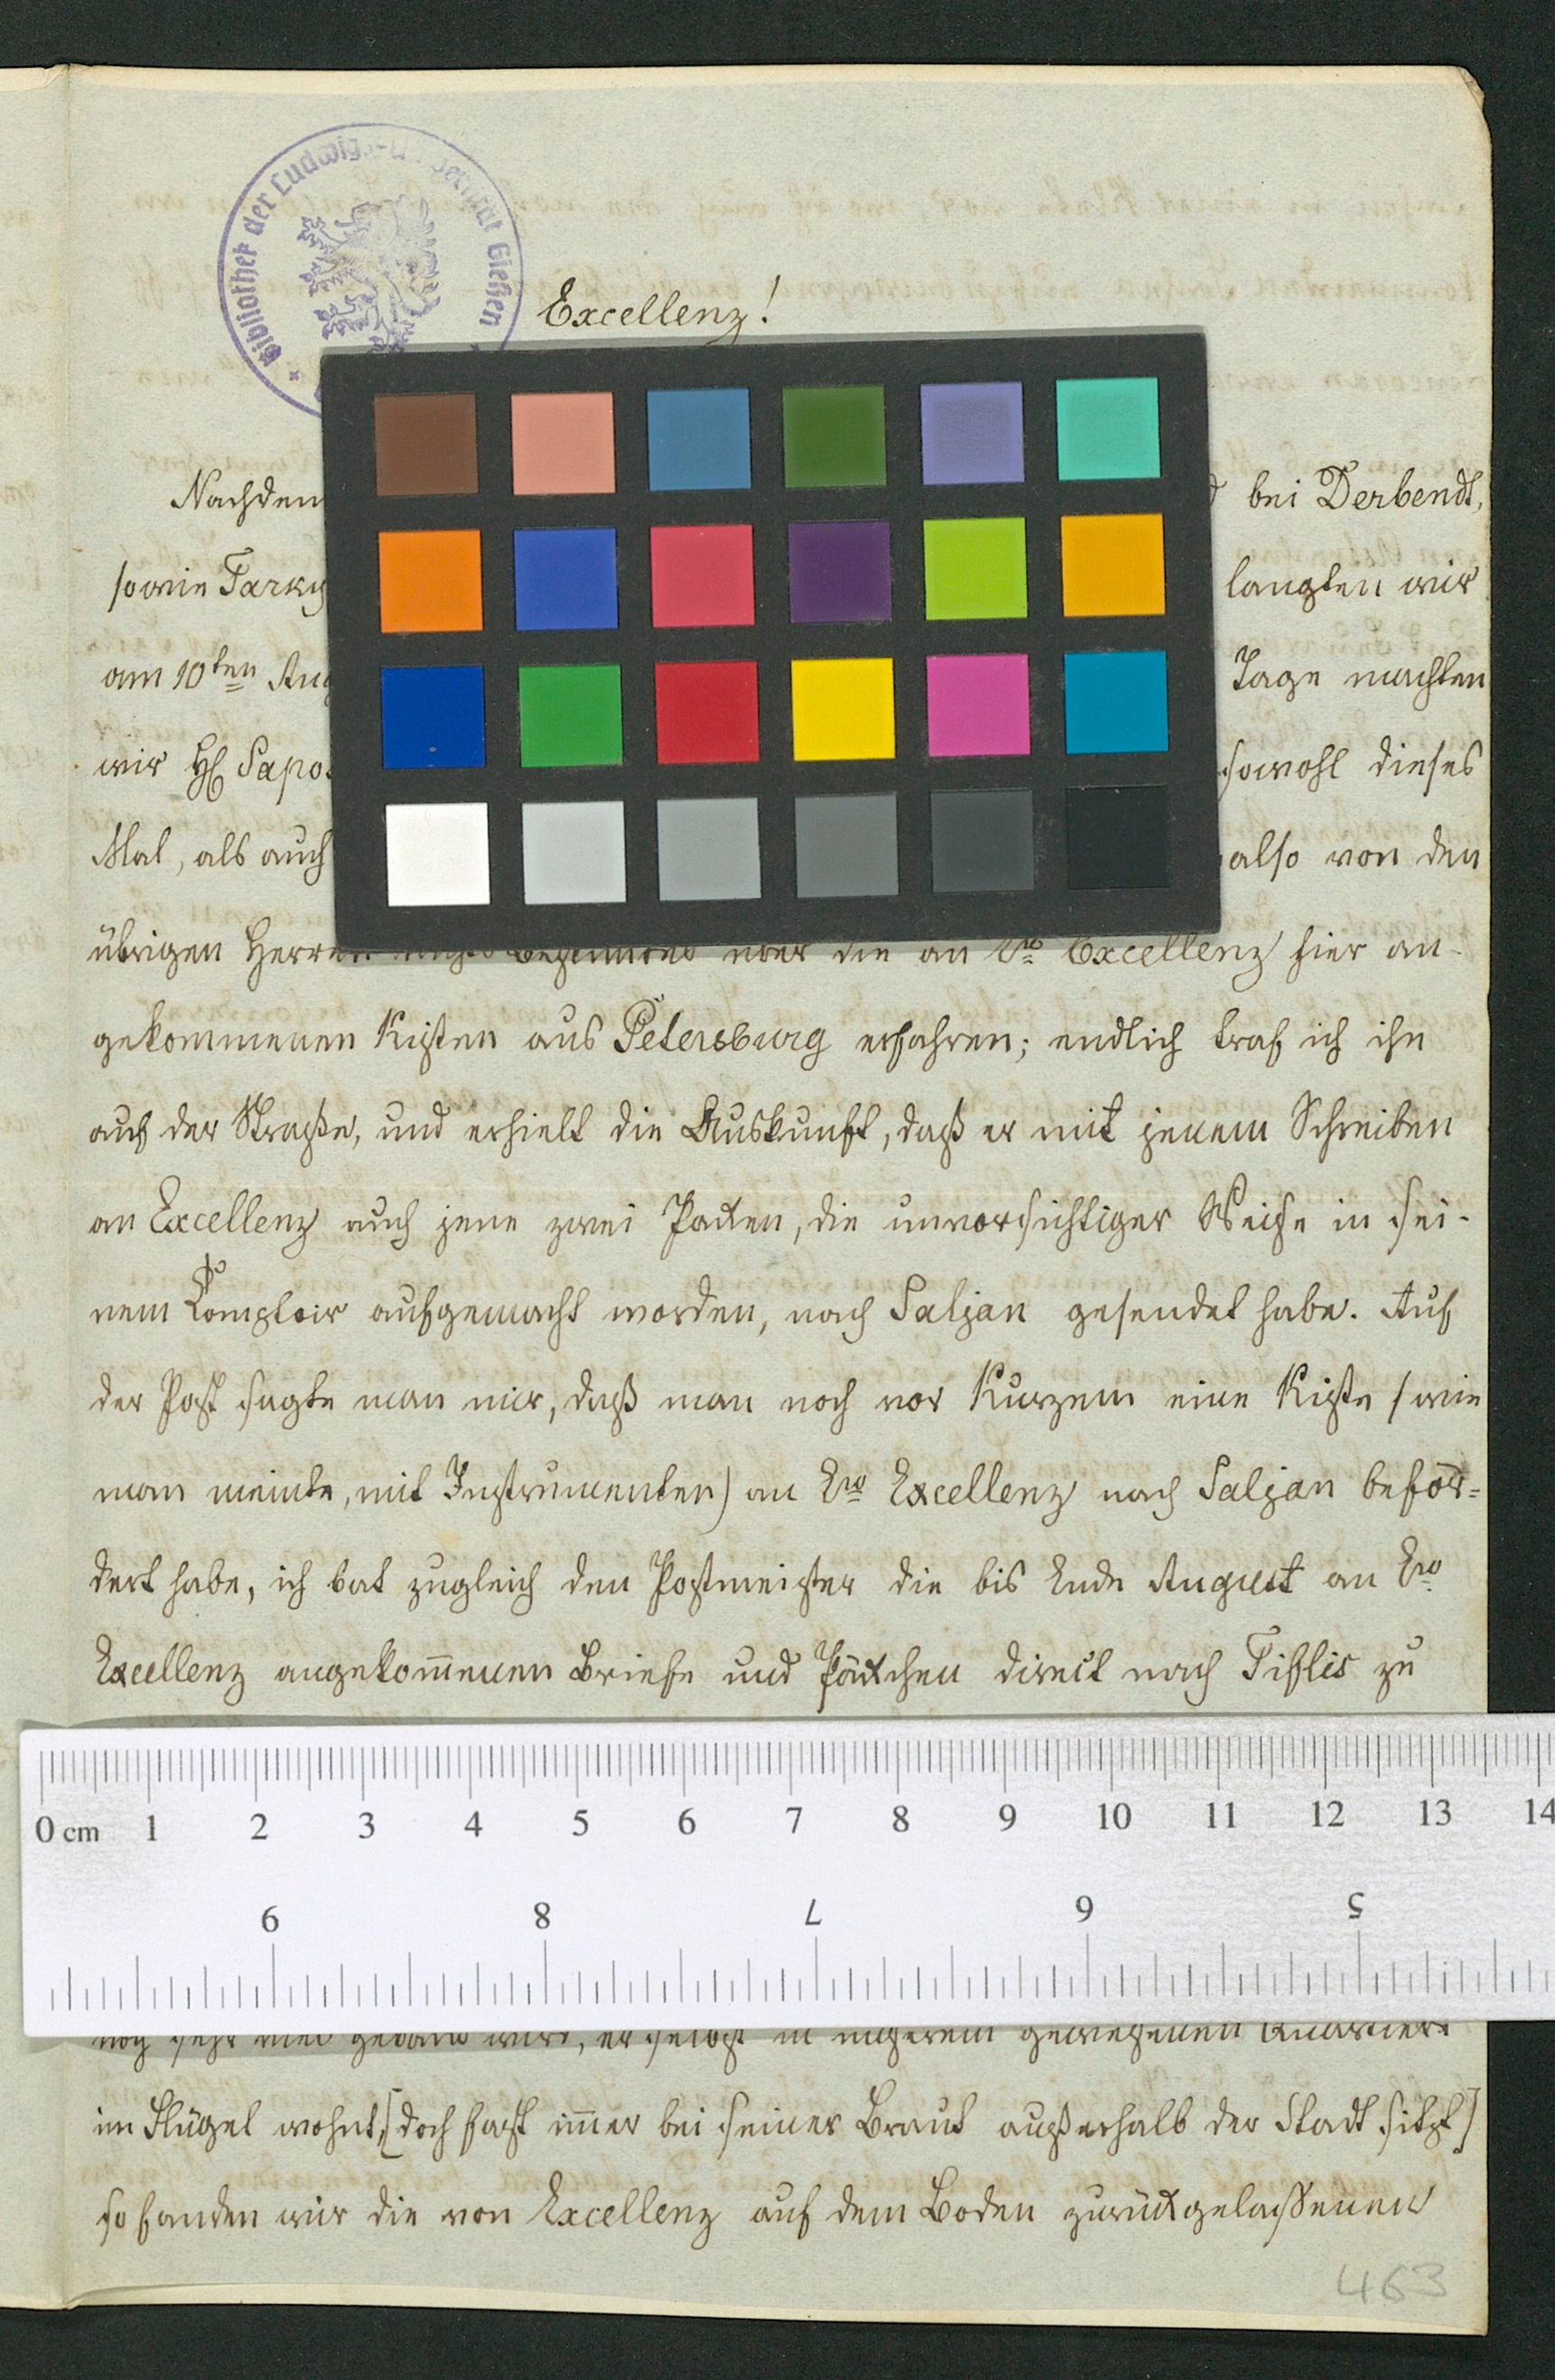 Bibliothek der Ludwigs- Gießen
Excellenz!
Nachdem bei Derbendt,
sowie Tarky langten wir
am 10ten Aug Tage machten
wir H Sapo sowohl dieses
Mal, als auch also von den
übrigen Herren über die an Ew Excellenz hier an-
gekommenen Kisten aus Petersburg erfahren; endlich traf ich ihn
auf der Straße, und erhielt die Auskunft, daß er mit jenem Schreiben
an Excellenz auch jene zwei Packen, die unvorsichtiger Weise in sei-
nem Comptoir aufgemacht worden, nach Saljan gesendet habe. Auf
der Post sagte man mir, daß man noch vor Kurzem eine Kiste (wie
man meinte, mit Instrumenten) an Ew Excellenz nach Saljan beför=
dert habe, ich bat zugleich den Postmeister die bis Ende August an Ew
Excellenz angekom̄enen Briefe und Päckchen direct nach Tiflis zu
0 cm 1 2 3 4 5 6 7 8 9 10 11 12 13 14
9 8 7 6 5
noch sehr viel gebaut wird, er selbst in unserem gewesenen Quartiere
im Flügel wohnt, [doch fast im̄er bei seiner Braut außerhalb der Stadt sitzt]
so fanden wir die von Excellenz auf dem Boden zurückgelassenen
463